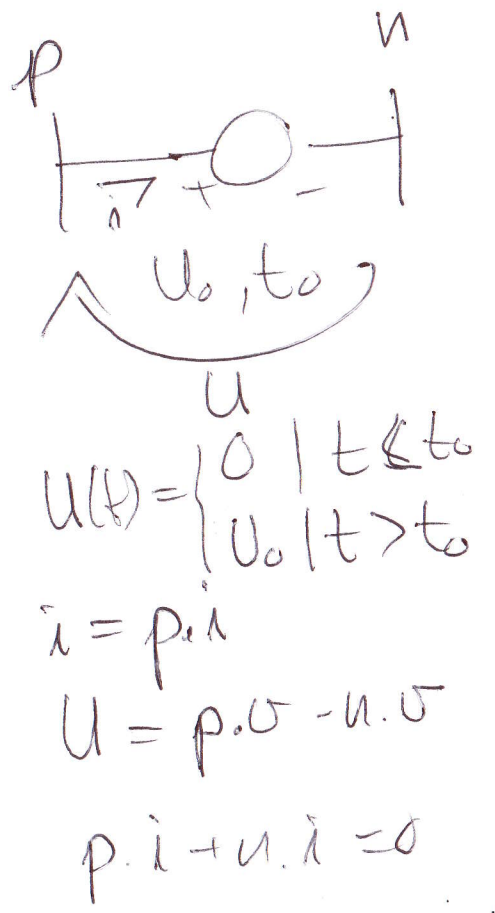 p n
i + -
U₀, t₀
U
U(t) = { 0 | t ≤ t₀
U₀ | t > t₀
i = p.i
U = p.v - n.v
p.i + n.i = 0